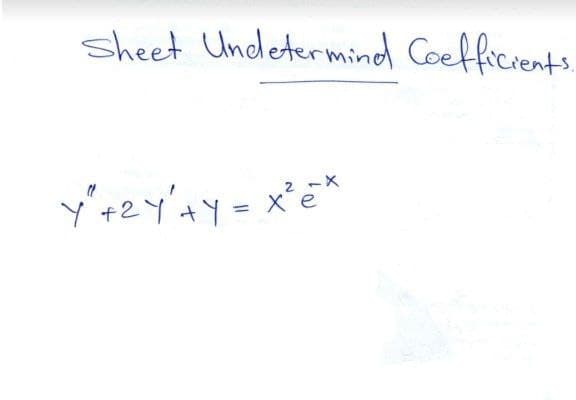 Sheet Undetermind Coefficients.
y" + 2y' + y = x² e⁻ˣ